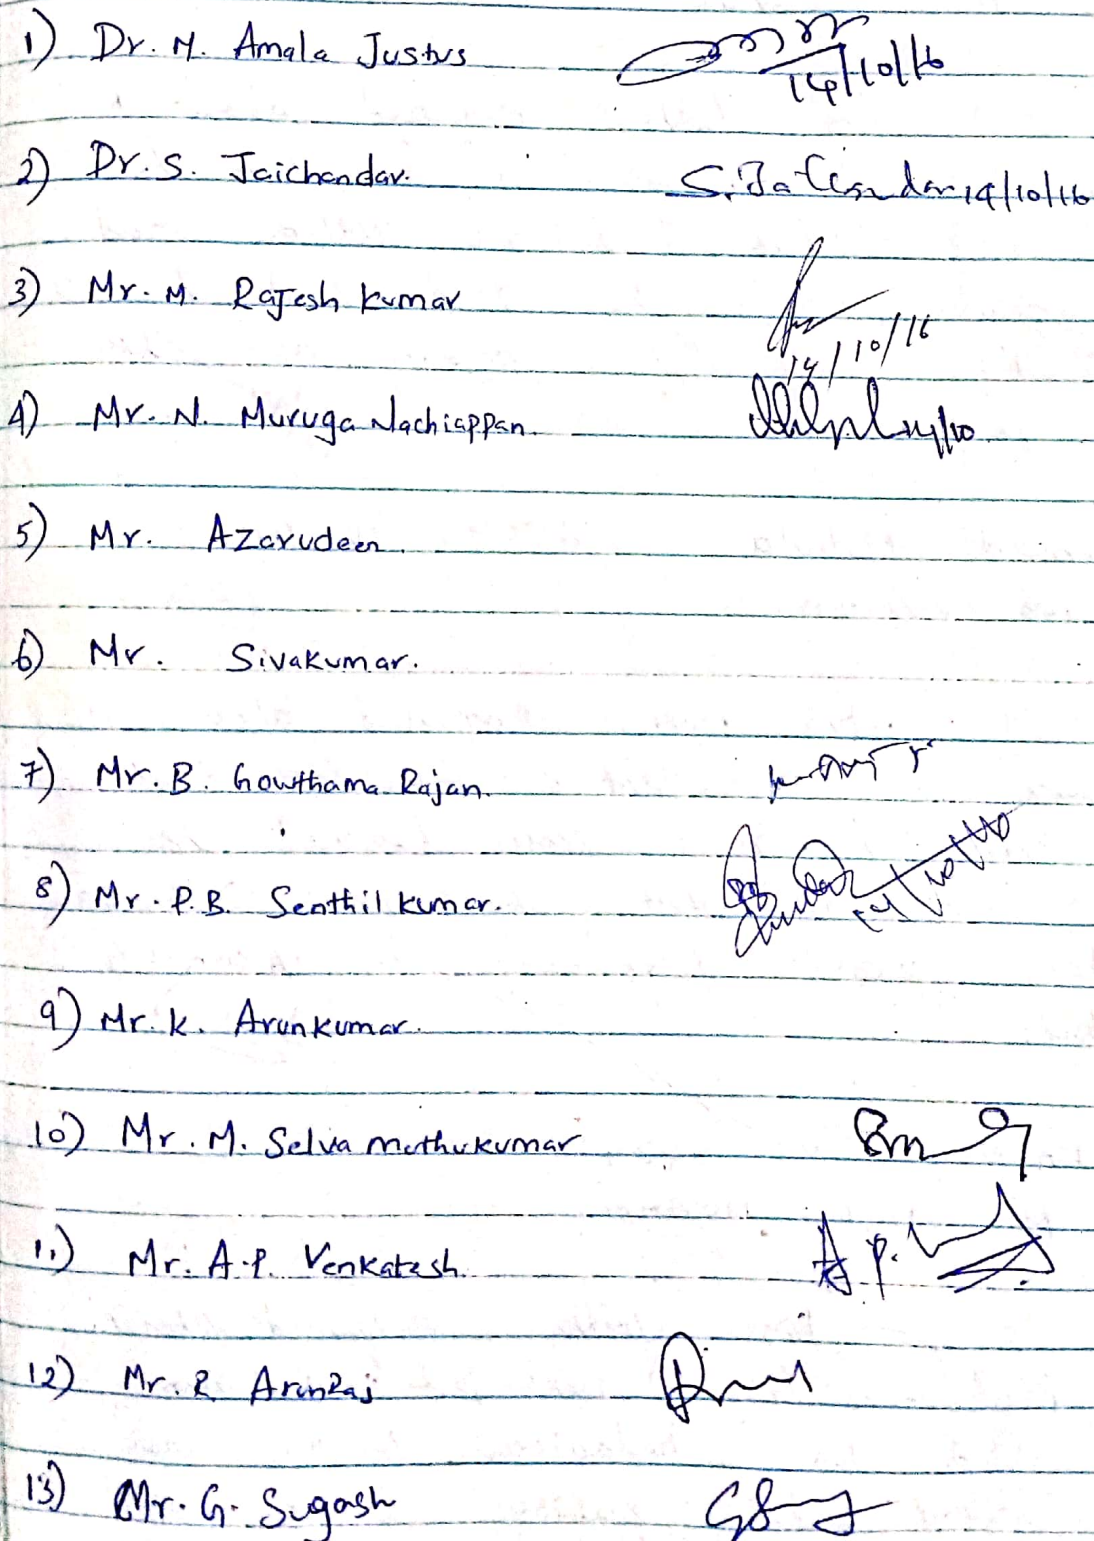 1) Dr. M. Amala Justus 14/10/16
2) Dr. S. Jaichandar. S. Jaichandar 14/10/16
3) Mr. M. Rajesh kumar 14/10/16
4) Mr. N. Muruga Nachiappan. 14/10
5) Mr. Azarudeen.
6) Mr. Sivakumar.
7) Mr. B. Gowthama Rajan.
8) Mr. P.B. Senthil kumar. 14/10/16
9) Mr. K. Arunkumar.
10) Mr. M. Selva muthukumar
11) Mr. A.P. Venkatesh. A.P.
12) Mr. R ArunRaj
13) Mr. G. Sugash